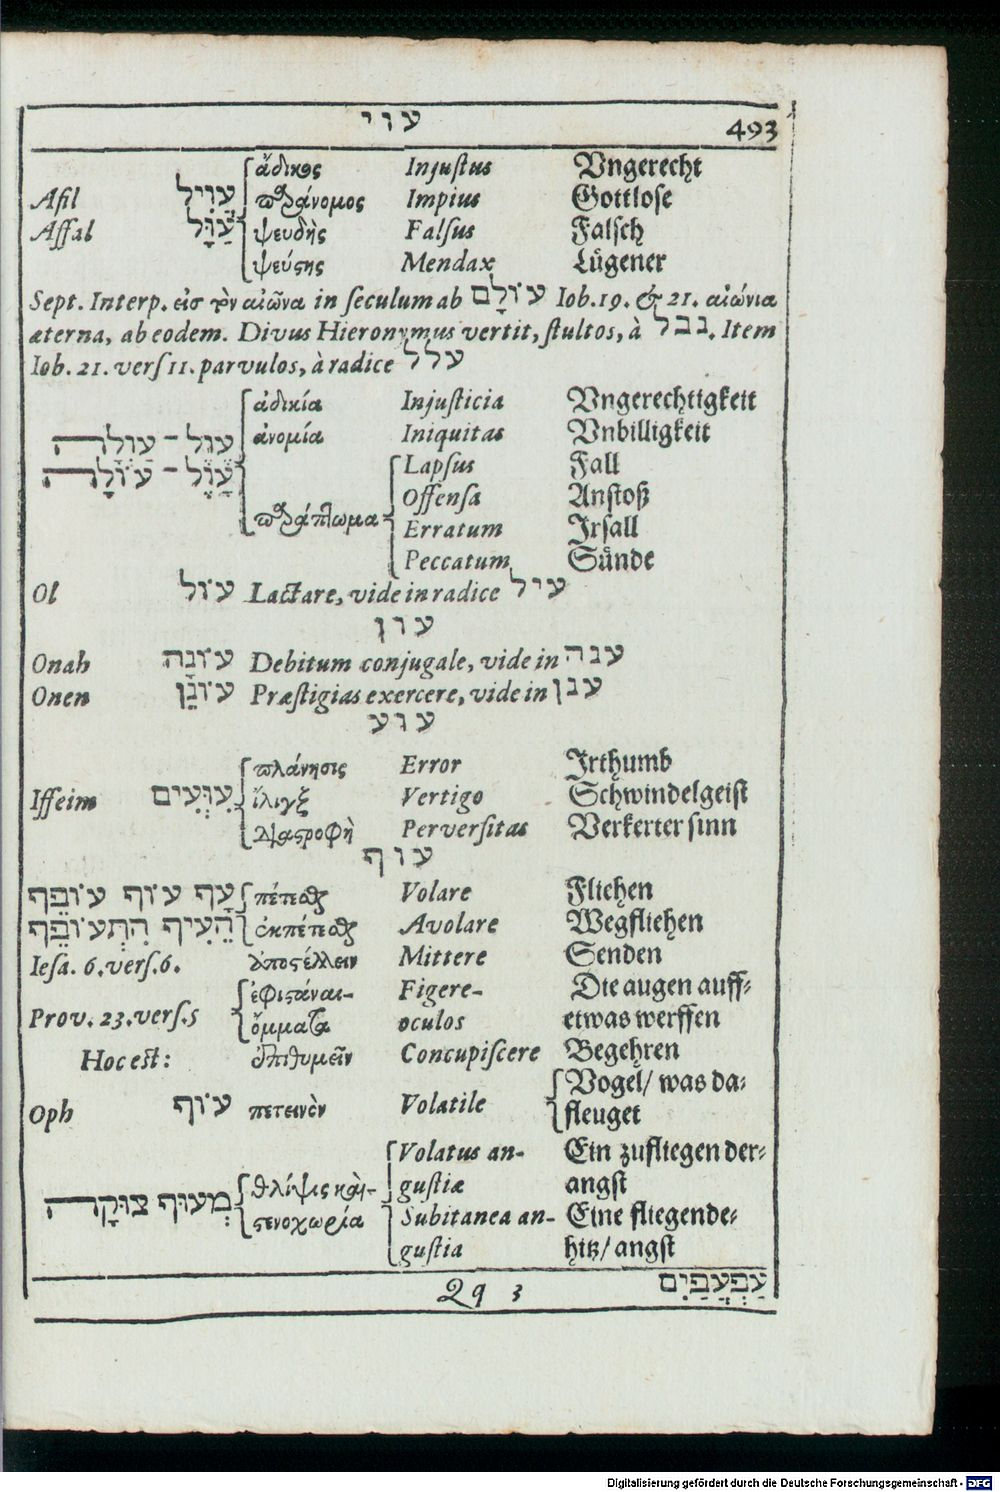 עוי 493
ἄδικος Injustus Vngerecht
Afil עֲוִיל παράνομος Impius Gottlose
Affal עַוָּל ψευδὴς Falsus Falsch
ψεύστης Mendax Lügener
Sept. Interp. εἰς τὸν αἰῶνα in seculum ab עוֹלָם Iob. 19. & 21. αἰώνια
æterna, ab eodem. Divus Hieronymus vertit, stultos, à נבל. Item
Iob. 21. vers 11. parvulos, à radice עלל
ἀδικία Injusticia Vngerechtigkeit
עַוְלָה - עֶוֶל ἀνομία Iniquitas Vnbilligkeit
עוֹלָה - עָוֶל Lapsus Fall
Offensa Anstoß
παράπτωμα Erratum Irsall
Peccatum Sünde
Ol עוֹל Lactare, vide in radice עיל
עון
Onah עוֹנָה Debitum conjugale, vide in ענה
Onen עוֹנֵן Præstigias exercere, vide in ענן
עוע
πλάνησις Error Irthumb
Iffeim עִוְעִים ἴλιγξ Vertigo Schwindelgeist
διαστροφὴ Perversitas Verkerter sinn
עוף
עָף עוּף עוֹפֵף πέπεσθαι Volare Fliehen
הֵעִיף הִתְעוֹפֵף ἐκπέπεσθαι Avolare Wegfliehen
Iesa. 6. vers. 6. ἀποστέλλειν Mittere Senden
ἐφιστάναι- Figere- Die augen auff-
Prov. 23. vers. 5 ὄμματα oculos etwas werffen
Hoc est: ἐπιθυμεῖν Concupiscere Begehren
Vogel/ was da-
Oph עוֹף πετεινὸν Volatile fleuget
Volatus an- Ein zufliegen der-
θλίψις καὶ- gustiæ angst
מְעוּף צוּקָה στενοχωρία Subitanea an- Eine fliegende-
gustia hitz/ angst
Qq 3 עַפְעַפַּיִם
Digitalisierung gefördert durch die Deutsche Forschungsgemeinschaft - DFG